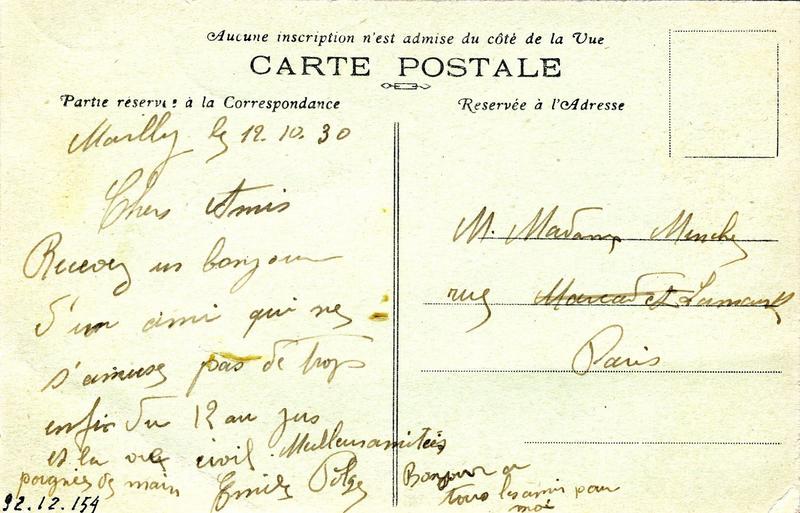 Aucune inscription n'est admise du côté de la Vue
CARTE POSTALE
Partie réservée à la Correspondance
Reservée à l'Adresse
Mailly le 12.10.30
Chers Amis
Recevez un bonjour
d'un ami qui ne
s'amuse pas de trop
enfin du 12 au jus
et la vie civil. Meilleurs amitiés
poignées de main Emile
M. Madame
rue Lamark
Paris
Bonjour a
tous les amis pour
moi
92.12.154